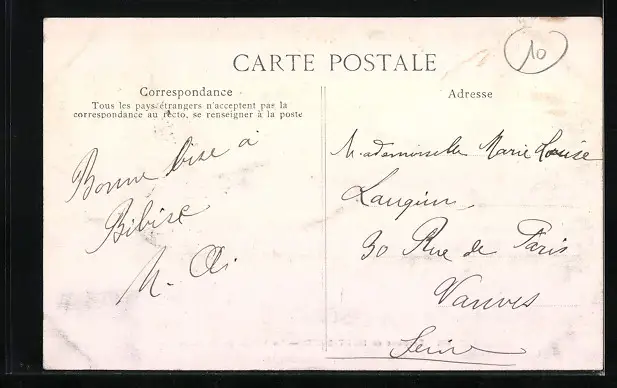 10
CARTE POSTALE
Correspondance
Tous les pays étrangers n'acceptent pas la
correspondance au recto, se renseigner à la poste
Adresse
Bonne bise à
Bibise
Mademoiselle Marie Louise
30 Rue de Paris
Vanves
Seine